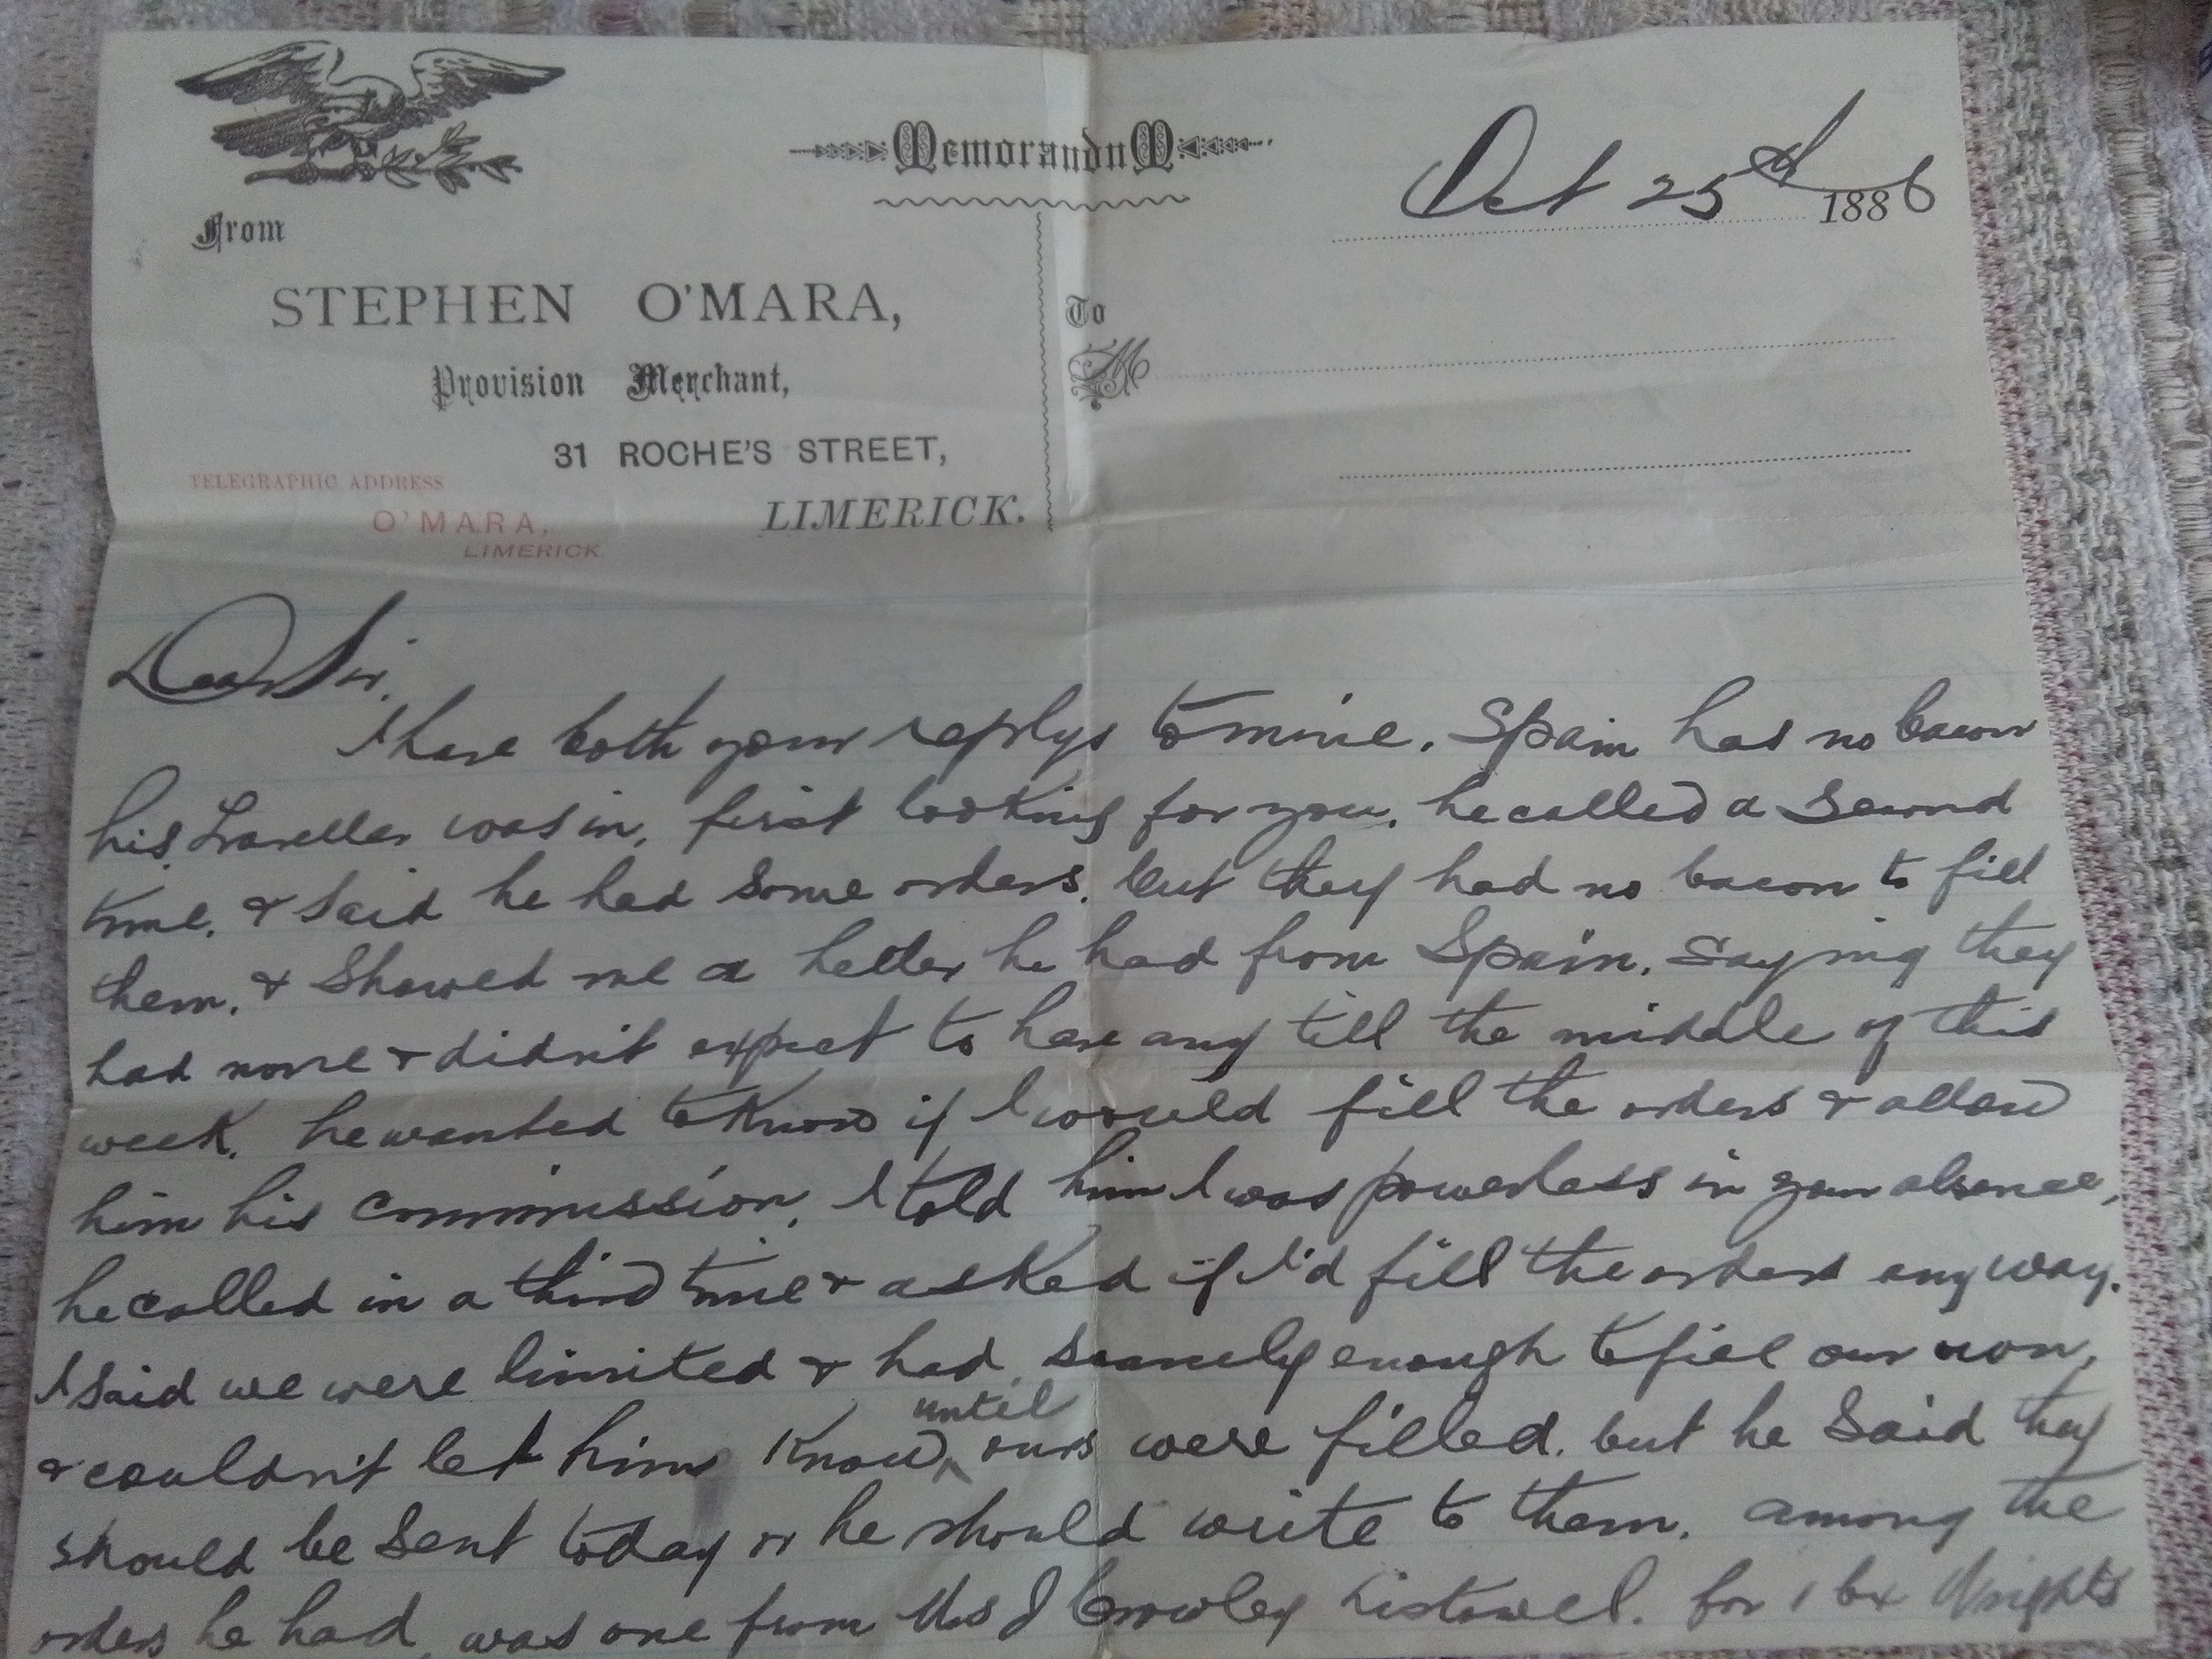 Memorandum
Oct 25th 1886
From
STEPHEN O'MARA,
Provision Merchant,
31 ROCHE'S STREET,
LIMERICK.
TELEGRAPHIC ADDRESS
O'MARA,
LIMERICK.
To
M
Dear Sir.
I have both your replys to mine. Spain has no bacon
his Traveller was in, first looking for you. he called a second
time. & said he had some orders. but they had no bacon to fill
them. & showed me a letter he had from Spain. saying they
had none & didn't expect to have any till the middle of this
week. he wanted to know if I would fill the orders & allow
him his commission. I told him I was powerless in your absence,
he called in a third time & asked if I'd fill the orders any way.
I said we were limited & had scarcely enough to fill our own,
& couldn't let him know until ours were filled. but he said they
should be sent today or he should write to them. among the
orders he had, was one from Mrs J Crowley Listowel. for 1 bx Wrights